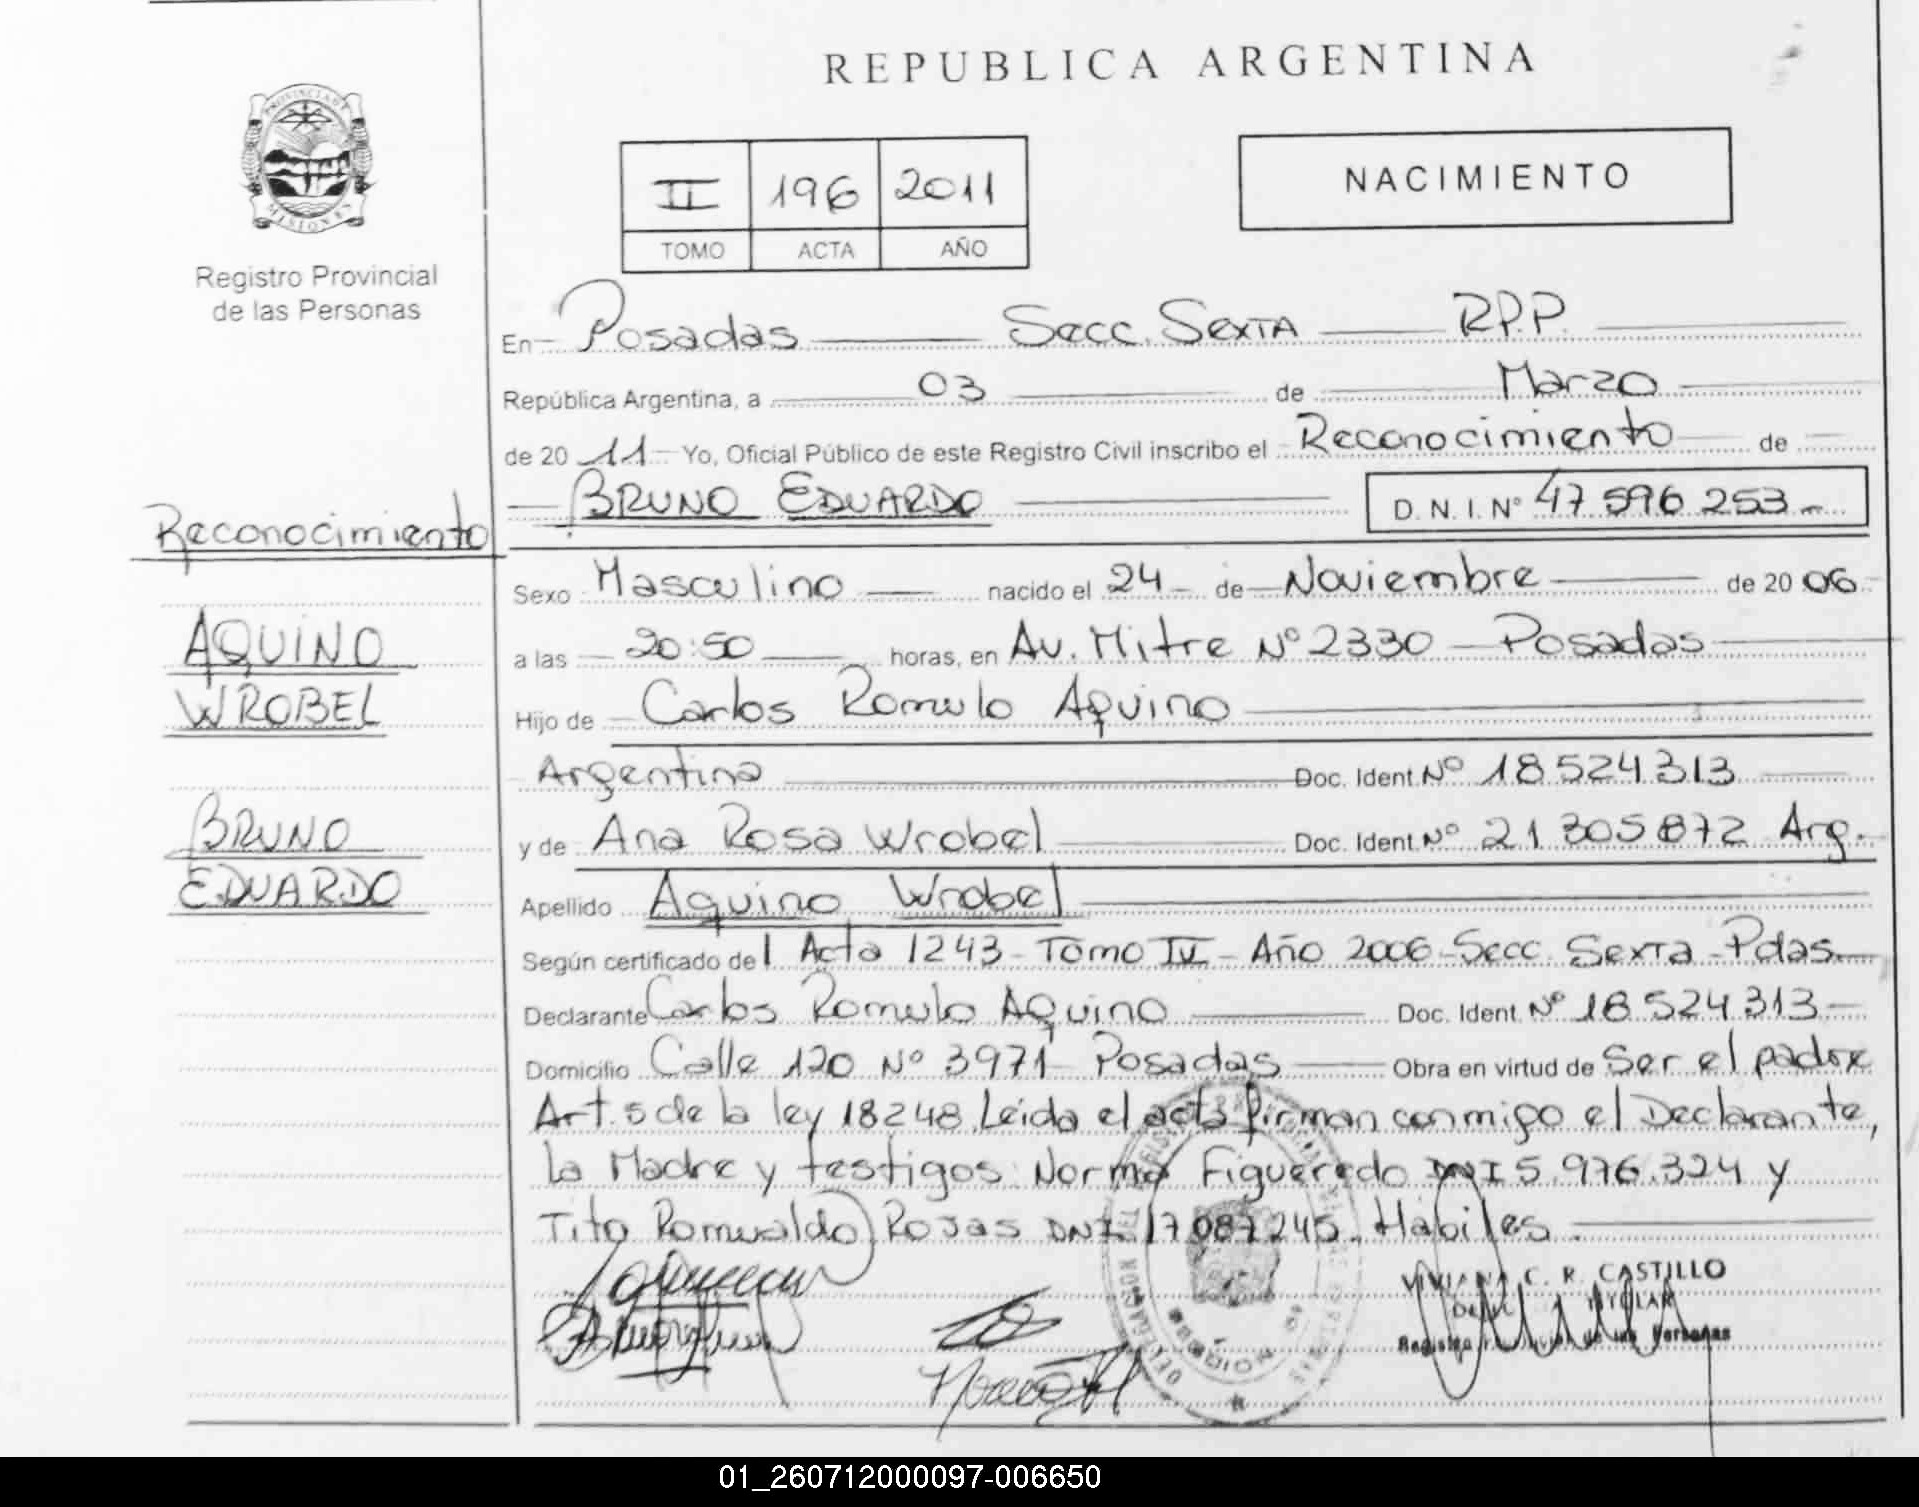 REPUBLICA ARGENTINA
PROVINCIA DE
MISIONES
Registro Provincial
de las Personas
II 196 2011
TOMO ACTA AÑO
NACIMIENTO
En Posadas Secc. Sexta R.P.P.
República Argentina, a 03 de Marzo
de 20 11 Yo, Oficial Público de este Registro Civil inscribo el Reconocimiento de
BRUNO EDUARDO D.N.I. Nº 47 596 253
Reconocimiento
AQUINO
WROBEL
BRUNO
EDUARDO
Sexo Masculino nacido el 24 de Noviembre de 20 06
a las 20:50 horas, en Av. Mitre Nº 2330 Posadas
Hijo de Carlos Romulo Aquino
Argentina Doc. Ident. Nº 18 524 313
y de Ana Rosa Wrobel Doc. Ident. Nº 21 305 872 Arg.
Apellido Aquino Wrobel
Según certificado del Acta 1243 - Tomo IV - Año 2006 - Secc. Sexta - Pdas.
Declarante Carlos Romulo Aquino Doc. Ident. Nº 18 524 313
Domicilio Calle 120 Nº 3971 Posadas Obra en virtud de Ser el padre
Art. 5 de la ley 18248. Leida el acta firman conmigo el Declarante,
la Madre y testigos: Norma Figueredo DNI 5.976.324 y
Tito Romualdo Rojas DNI 17 087 245. Habiles.
VIVIANA C. R. CASTILLO
TITULAR
de las Personas
01_260712000097-006650